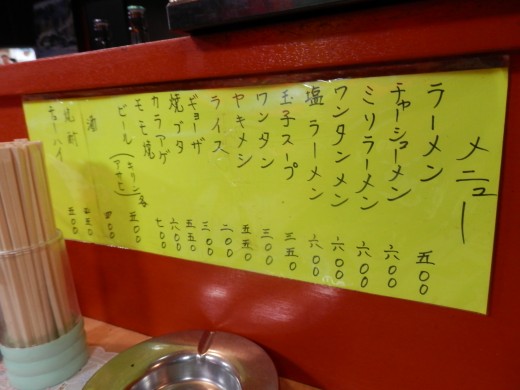 メニュー
ラーメン 五〇〇
チャーシューメン 六〇〇
ミソラーメン 六〇〇
ワンタンメン 六〇〇
塩ラーメン 六〇〇
玉子スープ 三五〇
ワンタン 三〇〇
ヤキメシ 五五〇
ライス 二〇〇
ギョーザ 三〇〇
焼ブタ 五五〇
カラアゲ 六〇〇
モモ焼 七〇〇
ビール（キリン アサヒ）各 五〇〇
酒
焼酎
チューハイ 五〇〇